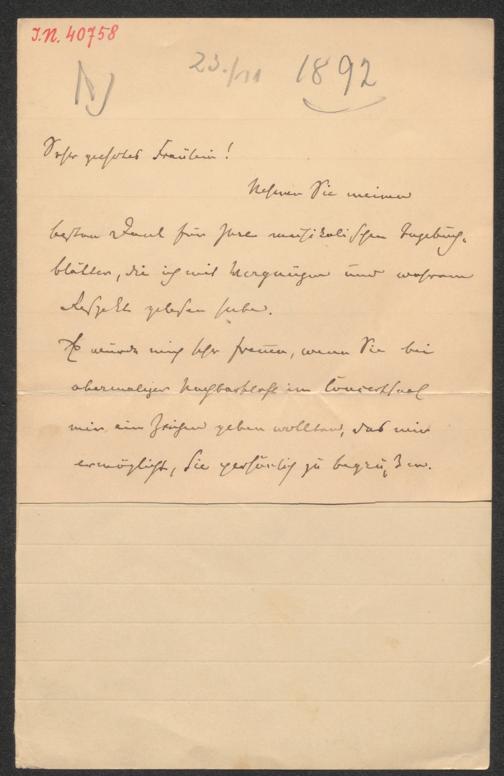 I.N. 40758
23./11 1892
Sehr geehrtes Fräulein!
Nehmen Sie meinen
besten Dank für Ihre musikalischen Tagebuch-
blätter, die ich mit Vergnügen und wahrem
Respekt gelesen habe.
Es würde mich sehr freuen, wenn Sie bei
abermaliger Nachbarschaft im Concertsaal
mir ein Zeichen geben wollten, das mir
ermöglicht, Sie persönlich zu begrüßen.